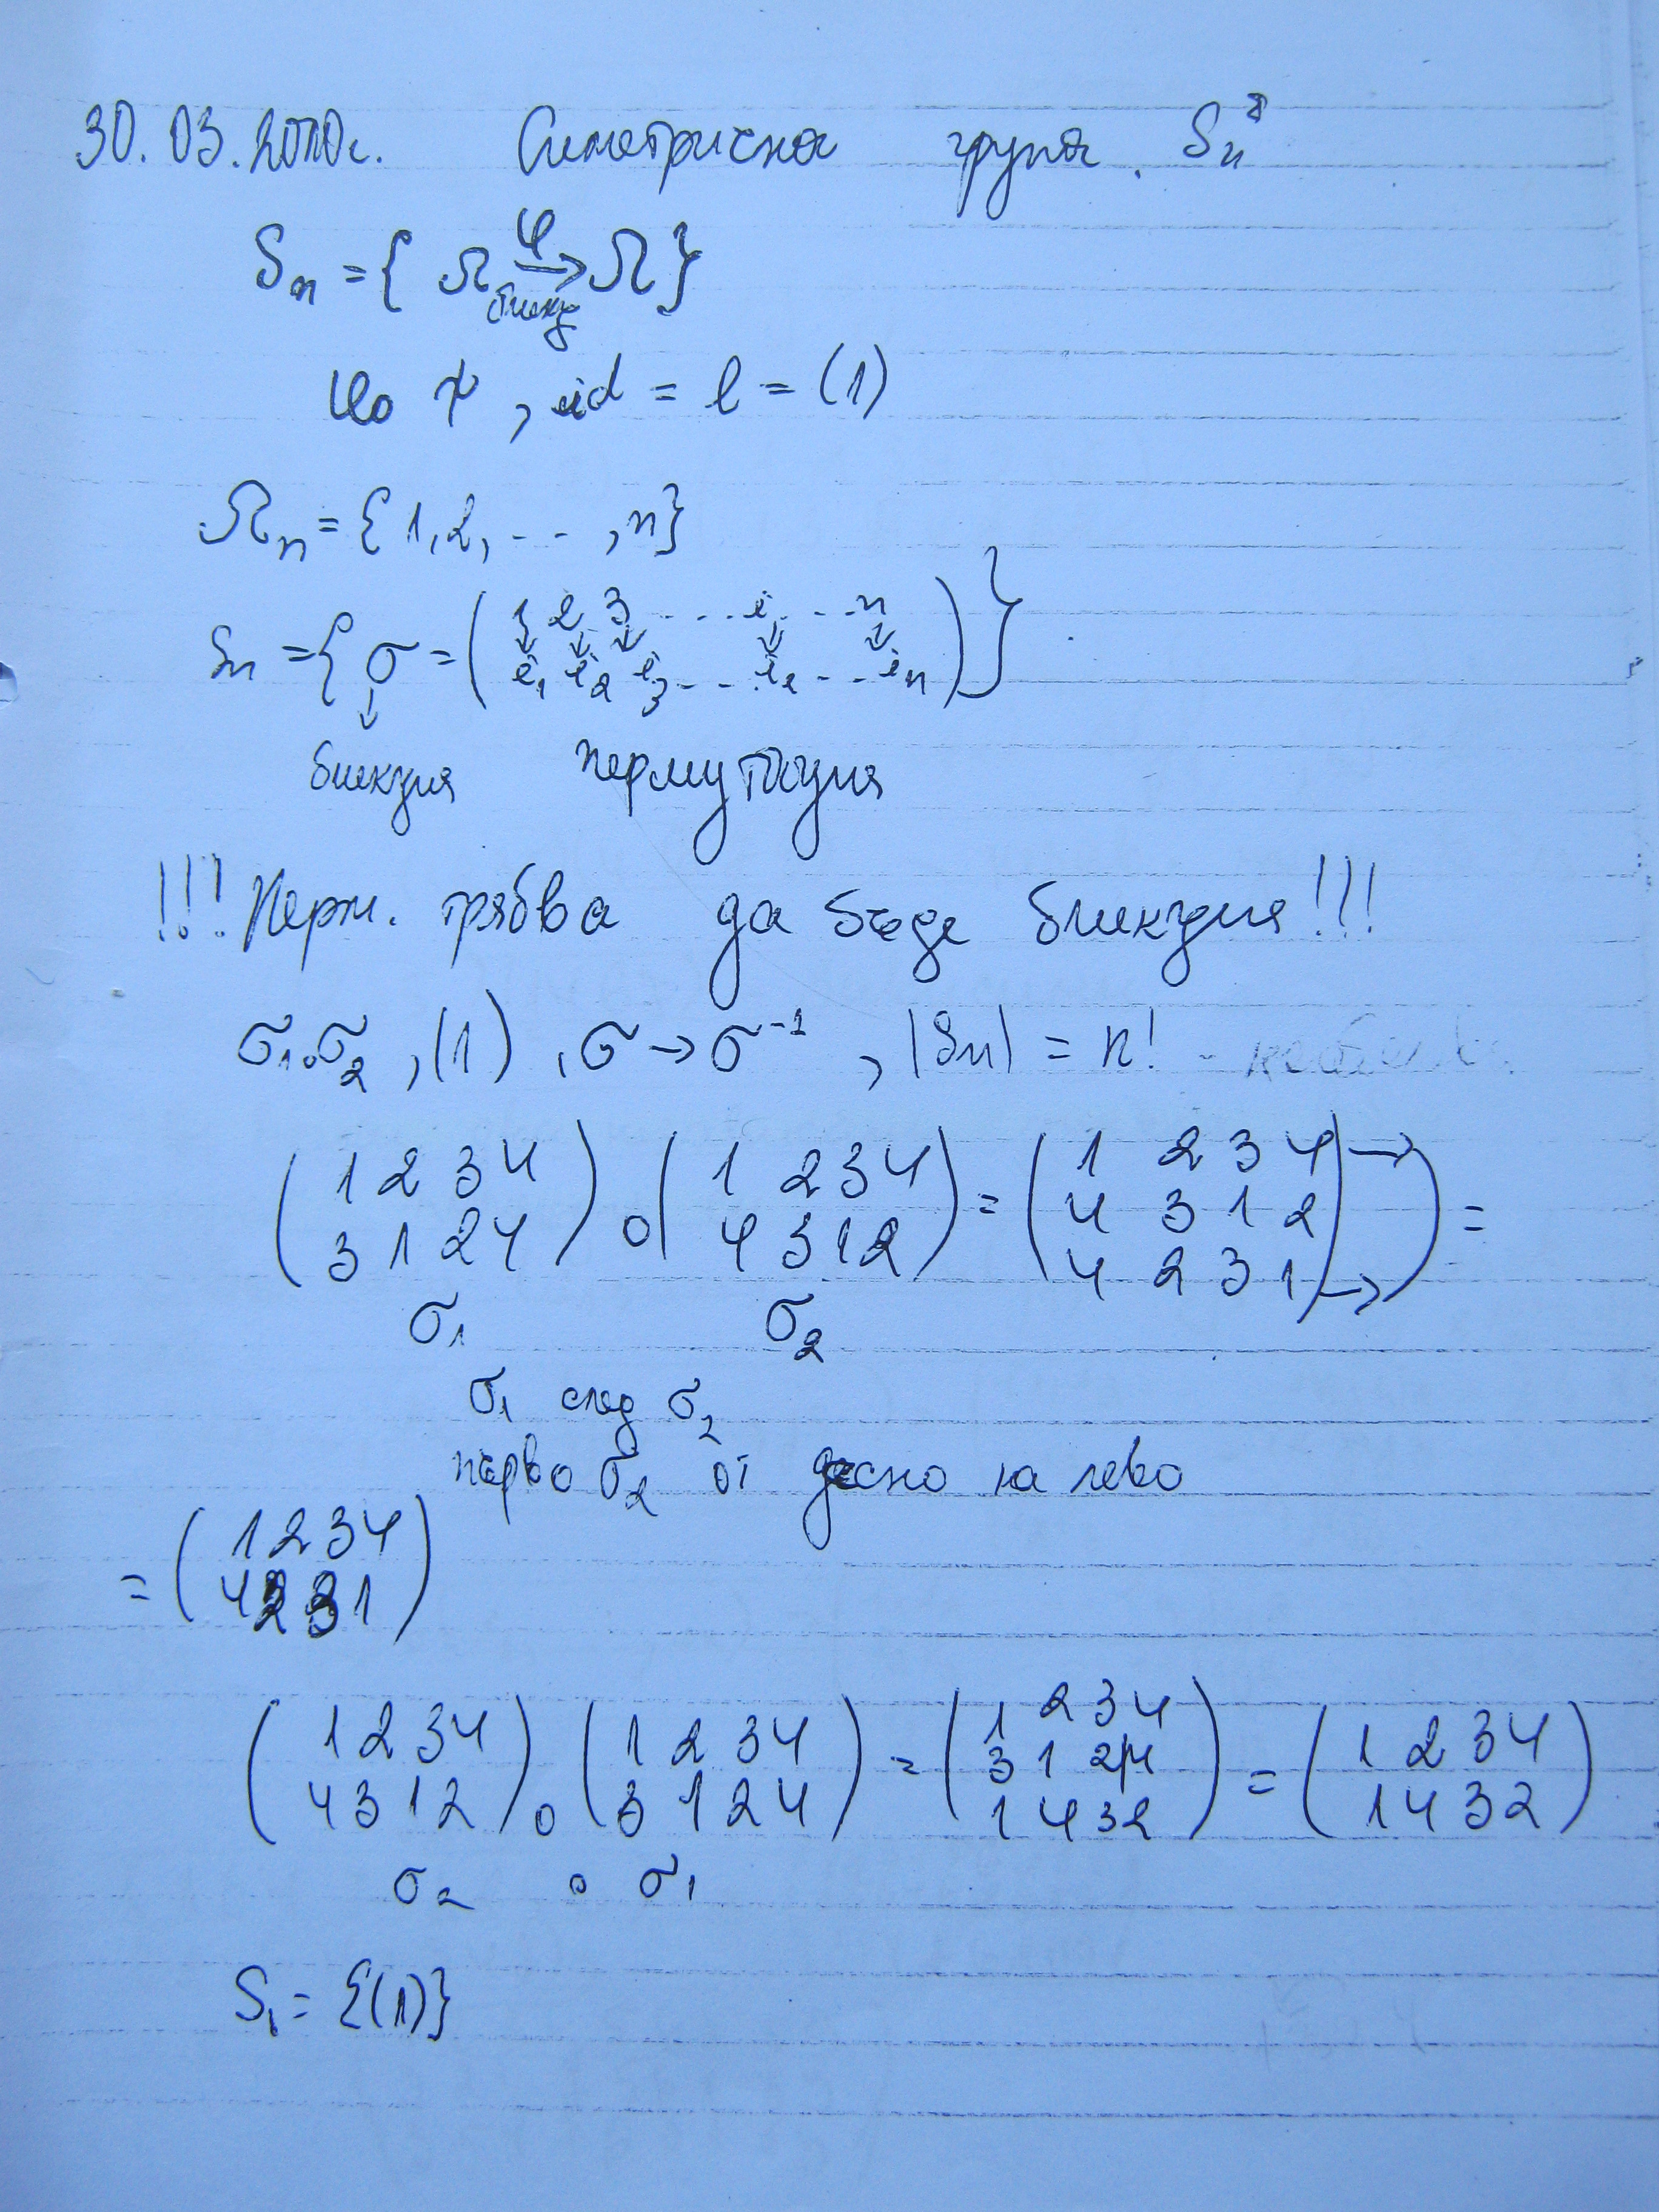 30.03.2010г. Симетрична група. Sn
Sn = { Ω φ→ Ω }
биекц
φ∘ψ, id = e = (1)
Ωn = {1,2, ... ,n}
Sn = { σ = ( 1 2 3 ... i ... n ) }
↓ ↓ ↓ ↓ ↓
i1 i2 i3 ... ii ... in
↓
биекция пермутация
!!! Перм. трябва да бъде биекция!!!
σ1∘σ2, (1), σ→σ⁻¹, |Sn| = n! -
( 1 2 3 4 ) ∘ ( 1 2 3 4 ) = ( 1 2 3 4 ) → ) =
( 3 1 2 4 ) ( 4 3 1 2 ) ( 4 3 1 2 )
( 4 2 3 1 ) → )
σ1 σ2
σ1 след σ2
първо σ2 от дясно на лево
= ( 1 2 3 4 )
( 4 2 3 1 )
( 1 2 3 4 ) ∘ ( 1 2 3 4 ) = ( 1 2 3 4 ) = ( 1 2 3 4 )
( 4 3 1 2 ) ( 3 1 2 4 ) ( 3 1 2 4 ) ( 1 4 3 2 )
( 1 4 3 2 )
σ2 ∘ σ1
S1 = {(1)}